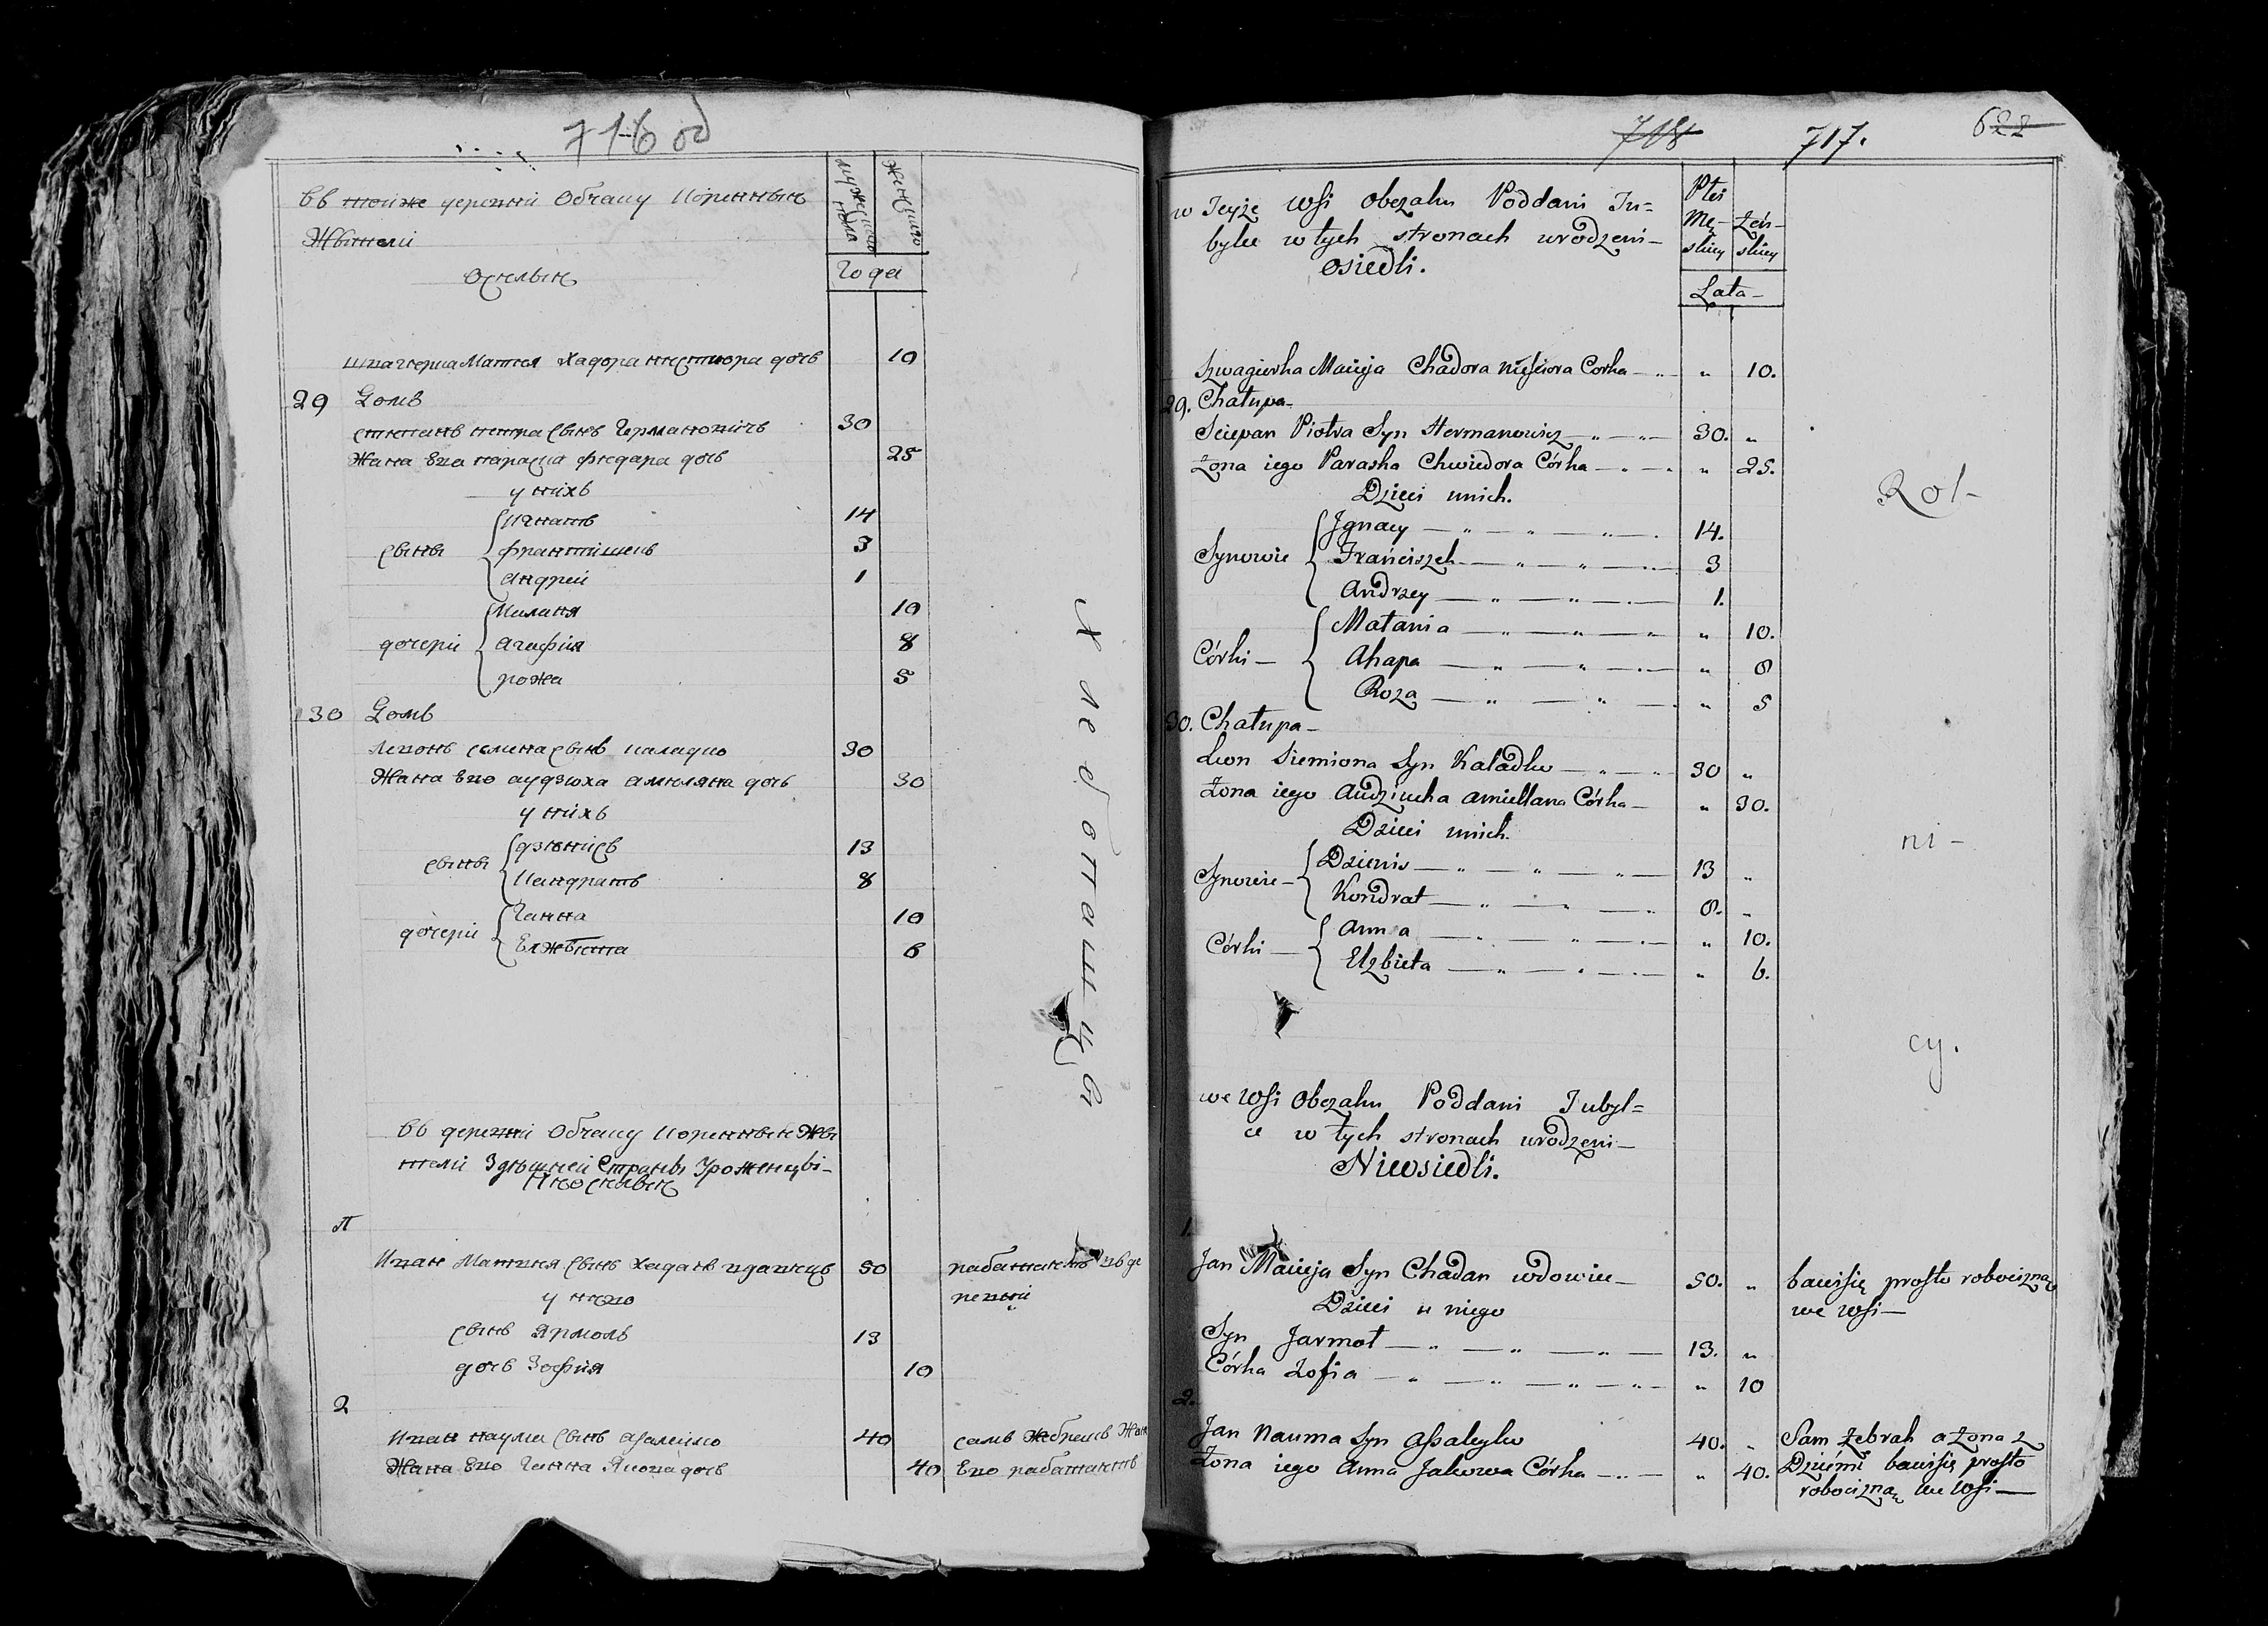 716 od
Въ тойже деревни Обчаку Коренныи
Жытели
Оселыи
мужескаго пола
женскаго
Года
швагерка Матея Хадора нестюра дочь 10
29 Домъ
степанъ петра сынъ Германовичъ 30
Жана Его параска фведара дочь 25
у нихъ
сыны
Игнатъ 14
францишекъ 3
Андрей 1
дочери
Миланя 10
Агафия 8
рожа 5
30 Домъ
Левонъ семена сынъ каладко 30
Жана Его аудзюха амеляна дочь 30
у нихъ
сыны
дзенисъ 13
Кандратъ 8
дочери
Ганна 10
Елжбета 6
Хлебопашцы
Въ деревни Обчаку Коренныи Жы
тели Здешней Страны Уроженцы
Неоселыи
Иван Матвея сынъ хаданъ вдавецъ 50
у него
сынъ Ярмолъ 13
дочь Зофия 10
2
Иван наума сынъ 40 самъ жебрецъ Жана
Жана Его Ганна Якова дочь 40 Его
718 717. 622
w Teyże wsi Obczaku Poddani Tu=
bylce w tych stronach urodzeni—
Osiedli.
Płci
Mę- Żeń-
skiey skiey
Lata—
Szwagierka Macieja Chadora Nieściora Corka — „ 10.
29. Chałupa—
Sciepan Piotra Syn Hermanowicz — „ — 30. „
Żona iego Paraska Chwiedora Córka — „ — „ 25.
Dzieci unich.
Synowie
Jgnacy — „ — 14.
Franciszek — „ — 3
Andrzey — „ — 1.
Córki —
Małania — „ — „ 10.
Ahapa — „ — „ 8
Roza — „ — „ 5
30. Chałupa—
Lwon Siemiona Syn Kaladko — „ — 30 „
Żona iego Audziucha Amiellana Córka — „ 30.
Dzieci unich.
Synowie—
Dzienis — „ — 13 „
Kondrat — „ — 8. „
Córki —
Anna — „ — „ 10.
Elzbieta — „ — „ 6.
Rol-
ni-
cy.
we wsi Obczaku Poddani Tubyl=
ce w tych stronach urodzeni—
Nieosiedli.
1.
Jan Macieja Syn Chadan wdowiec— 50. „ bawisię prosto robocizną
Dzieci u niego we wsi—
Syn Jarmoł — „ — 13. „
Córka Zofia — „ — „ 10
2.
Jan Nauma Syn 40. „ Sam Żebrak a Żona z
Żona iego Anna Jakowa Córka — „ — „ 40. Dziećmi bawisię prosto
robocizną we wsi—